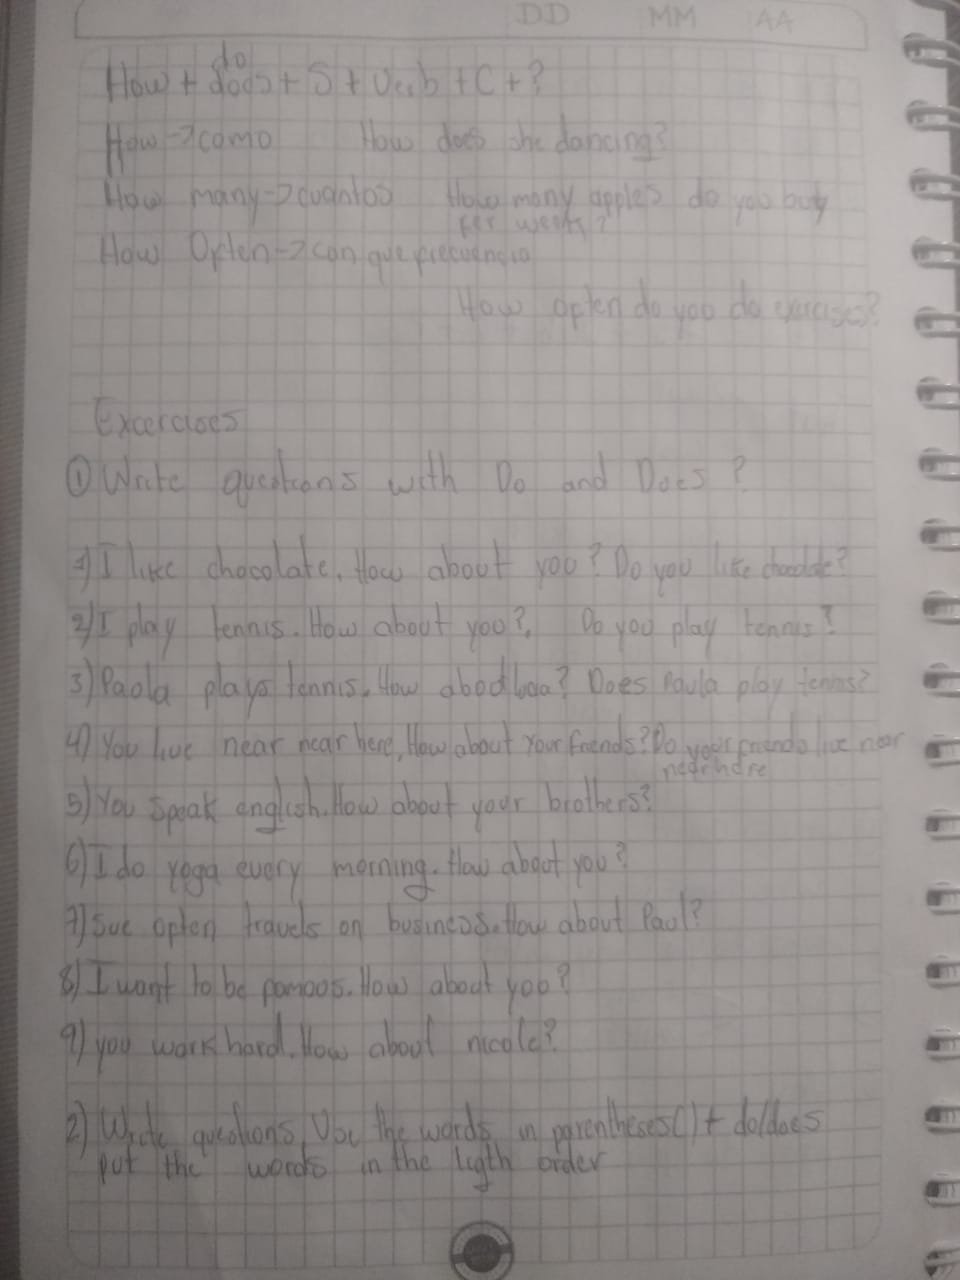 DD MM AA
do
How + does + S + Verb + C + ?
How → como How does she dancing?
How many → cuantos How many apples do you buy
per week?
How Often → con que frecuencia
How often do you do exercises?
Excercises
① Write questions with Do and Does?
1) I like chocolate. How about you? Do you like chocolate?
2) I play tennis. How about you?, Do you play tennis?
3) Paola plays tennis. How about ? Does Paula play tennis?
4) You live near near here, How about Your friends? Do your friends live near
near here
5) You speak english. How about your brothers?
6) I do yoga every morning. How about you?
7) Sue often travels on business. How about Paul?
8) I want to be famous. How about you?
9) you work hard. How about nicole?
2) Write questions, Use the words in parentheses() + do/does
put the words in the ligth order